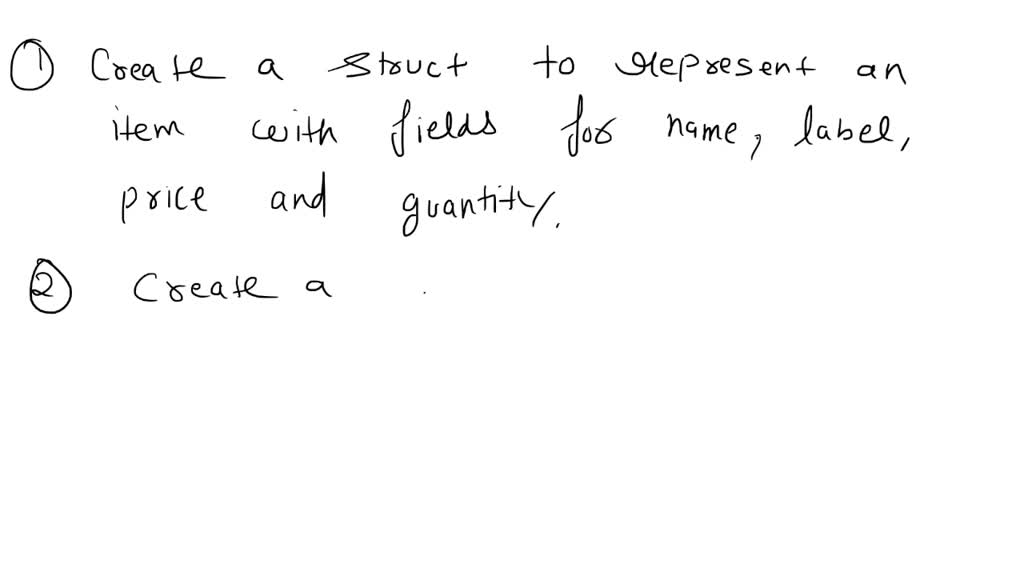 ① Create a struct to represent an
item with fields for name, label,
price and quantity.
② Create a